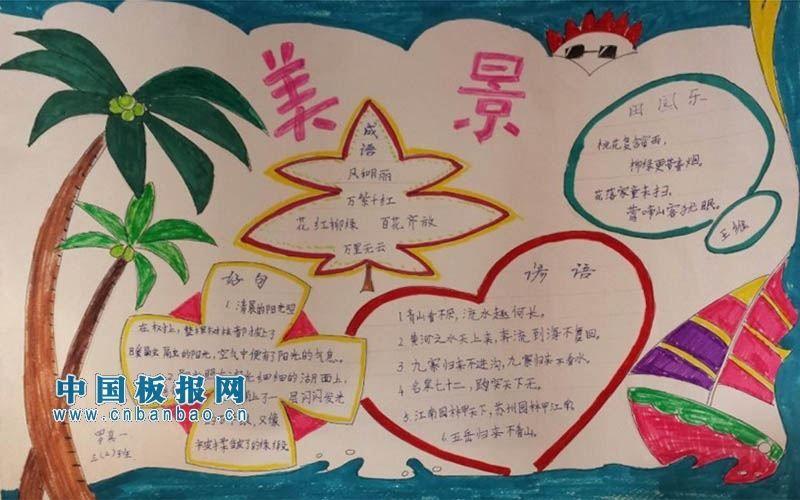 美景
成
语
风和明丽
万紫千红
花红柳绿 百花齐放
万里无云
田园乐
桃花复含宿雨，
柳绿更带春烟。
花落家童未扫，
莺啼山客犹眠。
王维
好句
1.清晨的阳光照
在树上，整棵树
暖融融的阳光，空气中便有了阳光的气息。
细细的湖面上，
闪闪发光
又像
谚语
1.青山看不尽，流水趣何长。
2.黄河之水天上来，奔流到海不复回。
3.九寨归来不进沟，九寨归来不看水。
4.名泉七十二，趵突天下无。
5.江南园林甲天下，苏州园林甲江南。
6.五岳归来不看山。
中国板报网
www.cnbanbao.cn
三(2)班